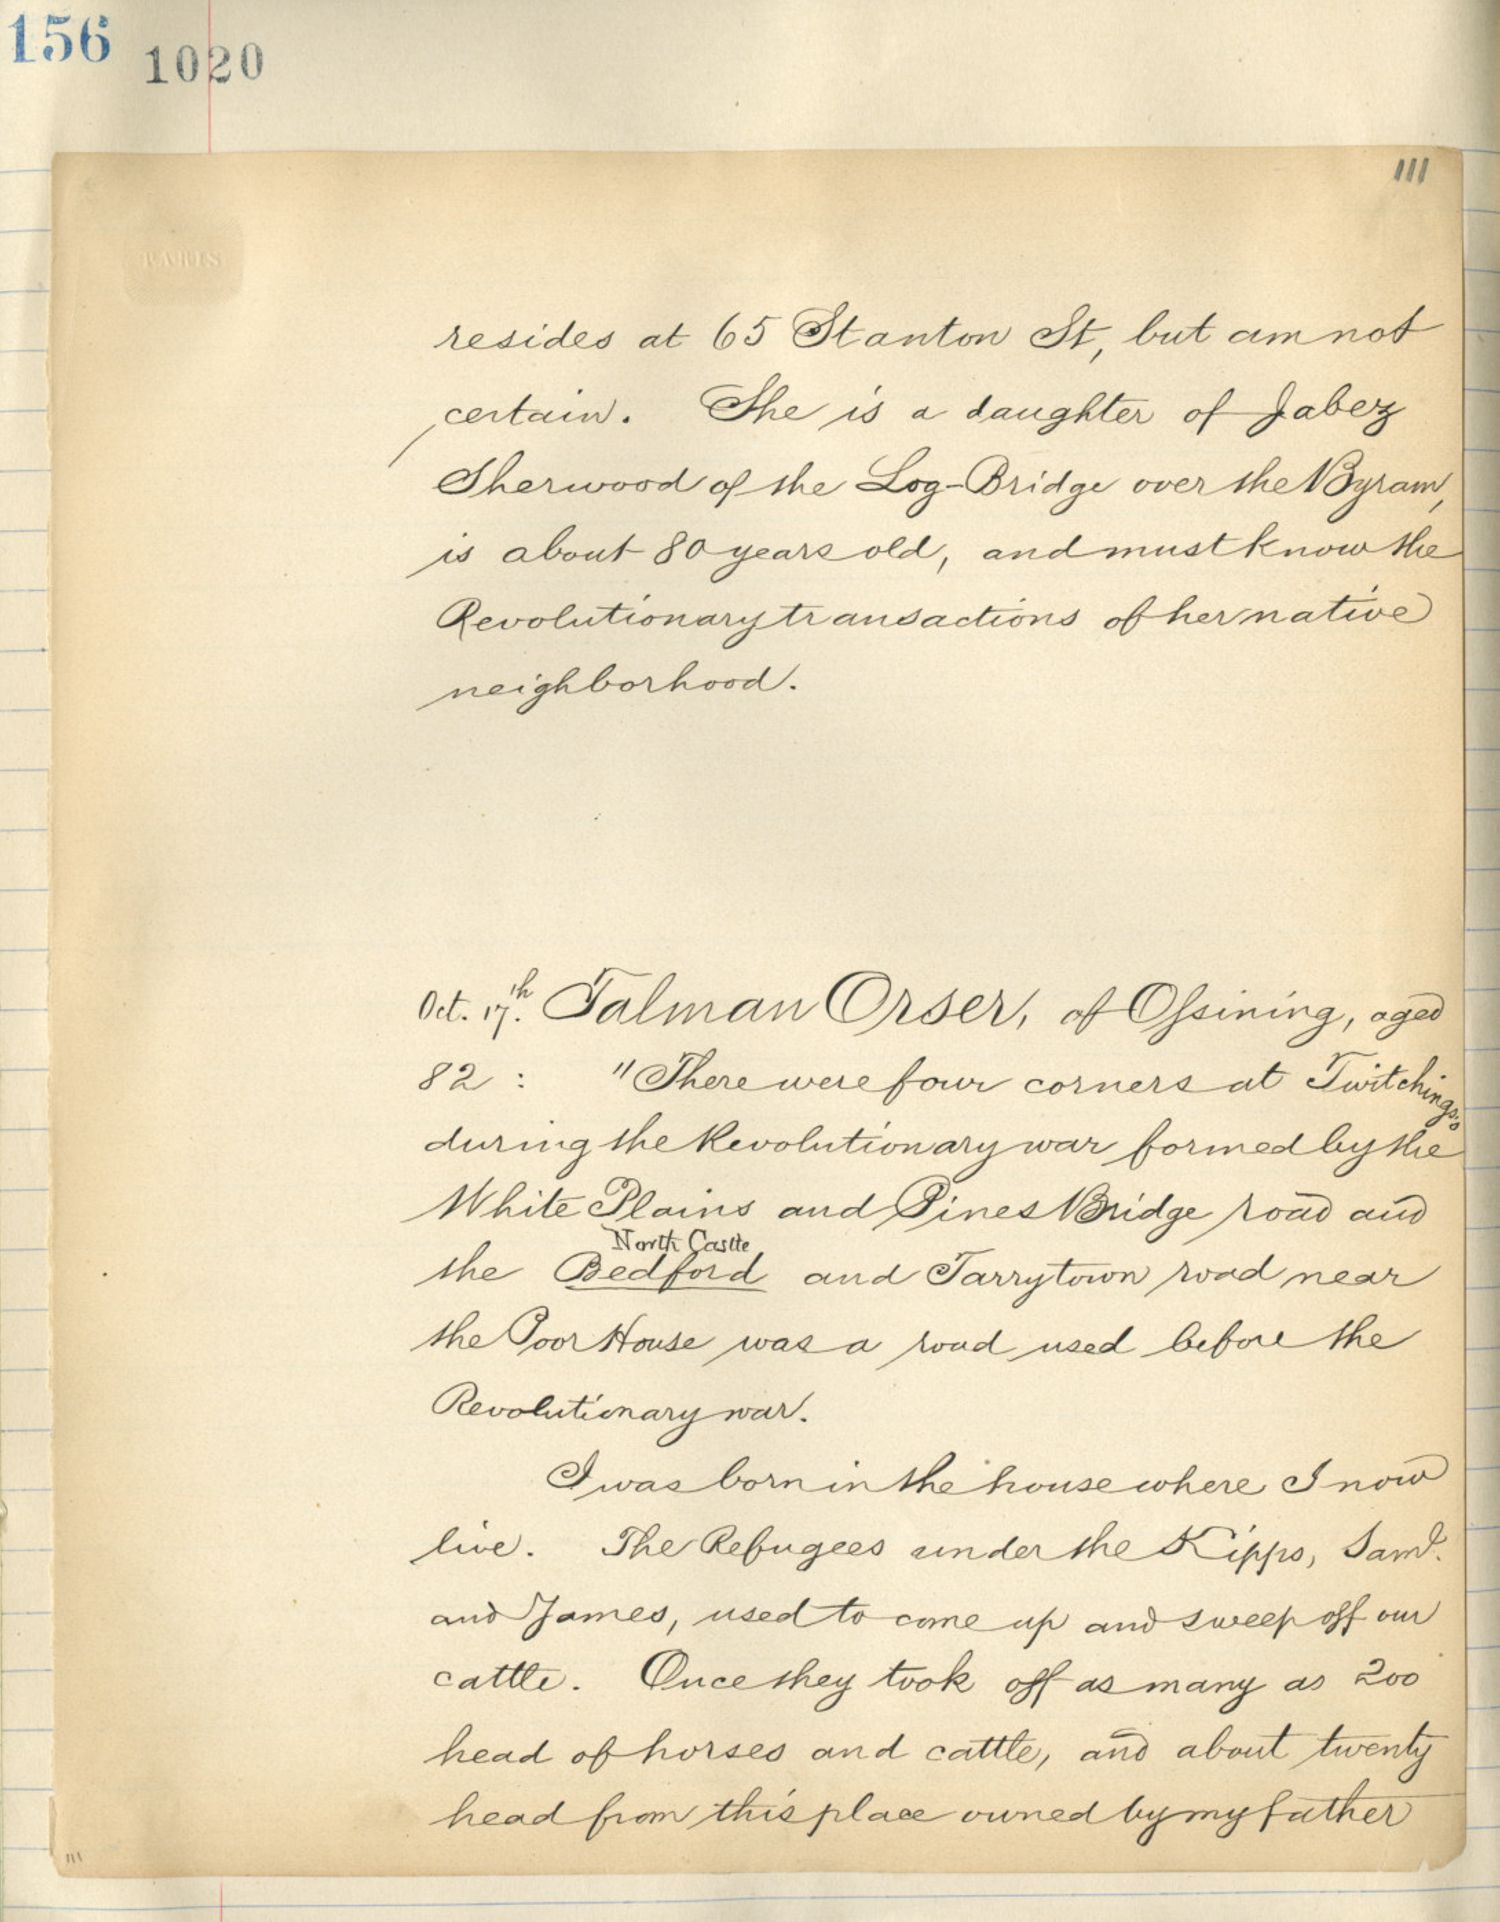 156 1020
111
PARIS
resides at 65 Stanton St, but am not
certain. She is a daughter of Jabez
Sherwood of the Log-Bridge over the Byram,
is about 80 years old, and must know the
Revolutionary transactions of her native
neighborhood.
Oct. 17th. Talman Orser, of Ossining, aged
82 : "There were four corners at Twitchings's
during the Revolutionary war formed by the
White Plains and Pines Bridge road and
North Castle
the Bedford and Tarrytown road near
the Poor House was a road used before the
Revolutionary war.
I was born in the house where I now
live. The Refugees under the Kipps, Saml.
and James, used to come up and sweep off our
cattle. Once they took off as many as 200
head of horses and cattle, and about twenty
head from this place owned by my father
111